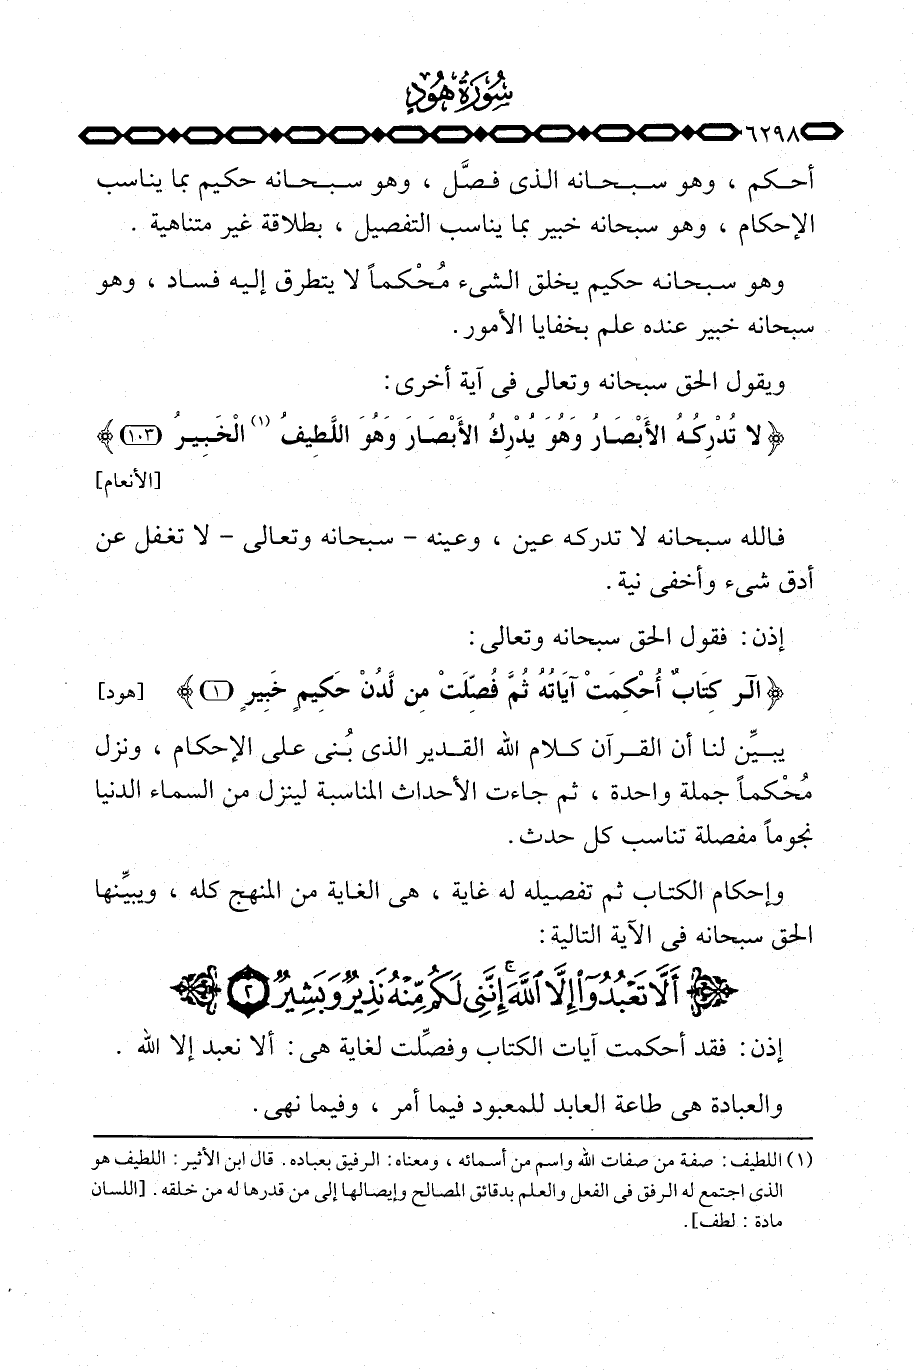 سُورَةُ هُودٍ
٦٢٩٨
أحـكم ، وهو سـبـحـانه الذى فـصَّل ، وهو سـبـحـانه حكيم بما يناسب
الإحكام ، وهو سبحانه خبير بما يناسب التفصيل ، بطلاقة غير متناهية .
وهو سـبحـانه حكيم يخلق الشىء مُحْكمـاً لا يتطرق إليه فسـاد ، وهو
سبحانه خبير عنده علم بخفايا الأمور.
ويقول الحق سبحانه وتعالى فى آية أخرى:
﴿ لا تُدْرِكُهُ الأَبْصَارُ وَهُوَ يُدْرِكُ الأَبْصَارَ وَهُوَ اللَّطِيفُ (١) الْخَبِيرُ (١٠٣) ﴾
[الأنعام]
فـالله سبحانه لا تدركه عين ، وعينه – سبحانه وتعالى – لا تغفل عن
أدق شىء وأخفى نية.
إذن: فقول الحق سبحانه وتعالى:
﴿ الَر كِتَابٌ أُحْكِمَتْ آيَاتُهُ ثُمَّ فُصِّلَتْ مِن لَّدُنْ حَكِيمٍ خَبِيرٍ (١) ﴾ [هود]
يبـيِّن لنا أن القـرآن كـلام الله القـدير الذى بُنى على الإحكام ، ونزل
مُحْكمـاً جملة واحدة ، ثم جاءت الأحداث المناسبة لينزل من السماء الدنيا
نجوماً مفصلة تناسب كل حدث.
وإحكام الكتاب ثم تفصيله له غاية ، هى الغاية من المنهج كله ، ويبيِّنها
الحق سبحانه فى الآية التالية:
أَلَّا تَعْبُدُوٓا۟ إِلَّا ٱللَّهَ ۚ إِنَّنِى لَكُم مِّنْهُ نَذِيرٌ وَبَشِيرٌ ٢
إذن: فقد أحكمت آيات الكتاب وفصِّلت لغاية هى: ألا نعبد إلا الله .
والعبادة هى طاعة العابد للمعبود فيما أمر ، وفيما نهى.
(١) اللطيف: صفة من صفات الله واسم من أسمائه ، ومعناه: الرفيق بعباده. قال ابن الأثير: اللطيف هو
الذى اجتمع له الرفق فى الفعل والعلم بدقائق المصالح وإيصالها إلى من قدرها له من خلقه . [اللسان
مادة : لطف].